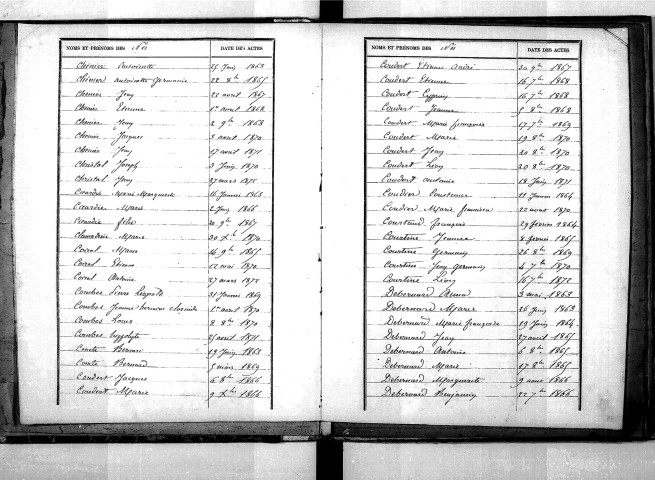 NOMS ET PRÉNOMS DES Nés DATE DES ACTES
Chénier Antoinette 25 Juin 1863
Chénier antoinette Germanie 22 8bre 1865
Chénier Jeny 22 avril 1867
Chénier Etienne 1er avril 1868
Chénier Jeny 2 9bre 1868
Chénier Jacques 3 avril 1870
Chénier Jeny 17 avril 1871
Christal Joseph 3 Juin 1870
Christal Jeny 27 mars 1872
Marie Marguerite 16 Janvier 1863
Marie 2 1866
20 9bre 1867
Marie 20 Xbre 1870
Corral Marie 14 9bre 1865
Corral Etienne 12 mai 1870
Corral Antoine 27 mars 1872
Combes Pierre Léopold 21 Janvier 1869
Combes Jeanne 1er avril 1870
Combes Louis 8 8bre 1870
Combes hyppolyte 25 avril 1871
Comte Bernard 19 Juin 1863
Comte Bernard 5 mars 1869
Coudert Jacques 6 8bre 1866
Coudert Marie 9 Xbre 1866
NOMS ET PRÉNOMS DES Nés DATE DES ACTES
Coudert Etienne André 20 9bre 1867
Coudert Etienne 16 7bre 1868
Coudert Cyprien 16 7bre 1868
Coudert Jeanne 5 8bre 1868
Coudert Marie françoise 17 7bre 1869
Coudert Marie 19 8bre 1870
Coudert Jeny 20 8bre 1870
Coudert Léony 20 8bre 1870
Coudert antonie 18 Juin 1871
Coudier 21 Janvier 1864
Coudier Marie 22 aout 1870
Courteau françois 29 février 1864
Courtine Jeanne 8 février 1865
Courtine Germany 26 8bre 1869
Courtine Jeny Germany 4 7bre 1870
Courtine Lény 16 7bre 1872
Debernard 3 mai 1863
Debernard Marie 26 Juin 1863
Debernard Marie françoise 19 Juin 1864
Debernard Jeny 27 avril 1865
Debernard Antoine 6 8bre 1865
Debernard Marie 17 8bre 1865
Debernard Marguerite 9 aout 1866
Debernard Benjamin 22 7bre 1866